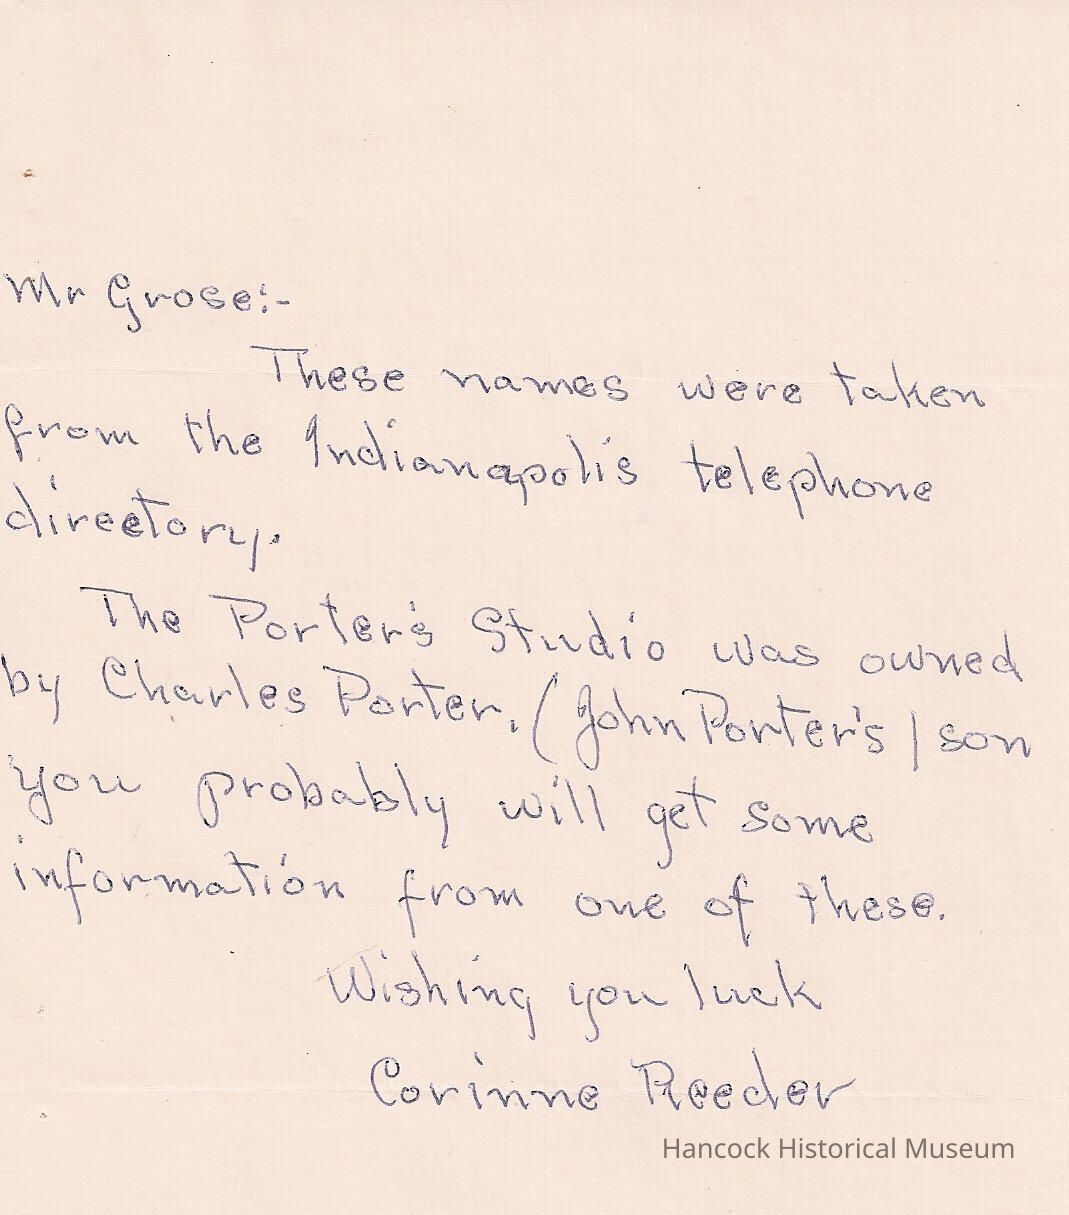 Mr Grose:-
These names were taken
from the Indianapolis telephone
directory.
The Porter's Studio was owned
by Charles Porter. (John Porter's) son
you probably will get some
information from one of these.
Wishing you luck
Corinne Reeder
Hancock Historical Museum